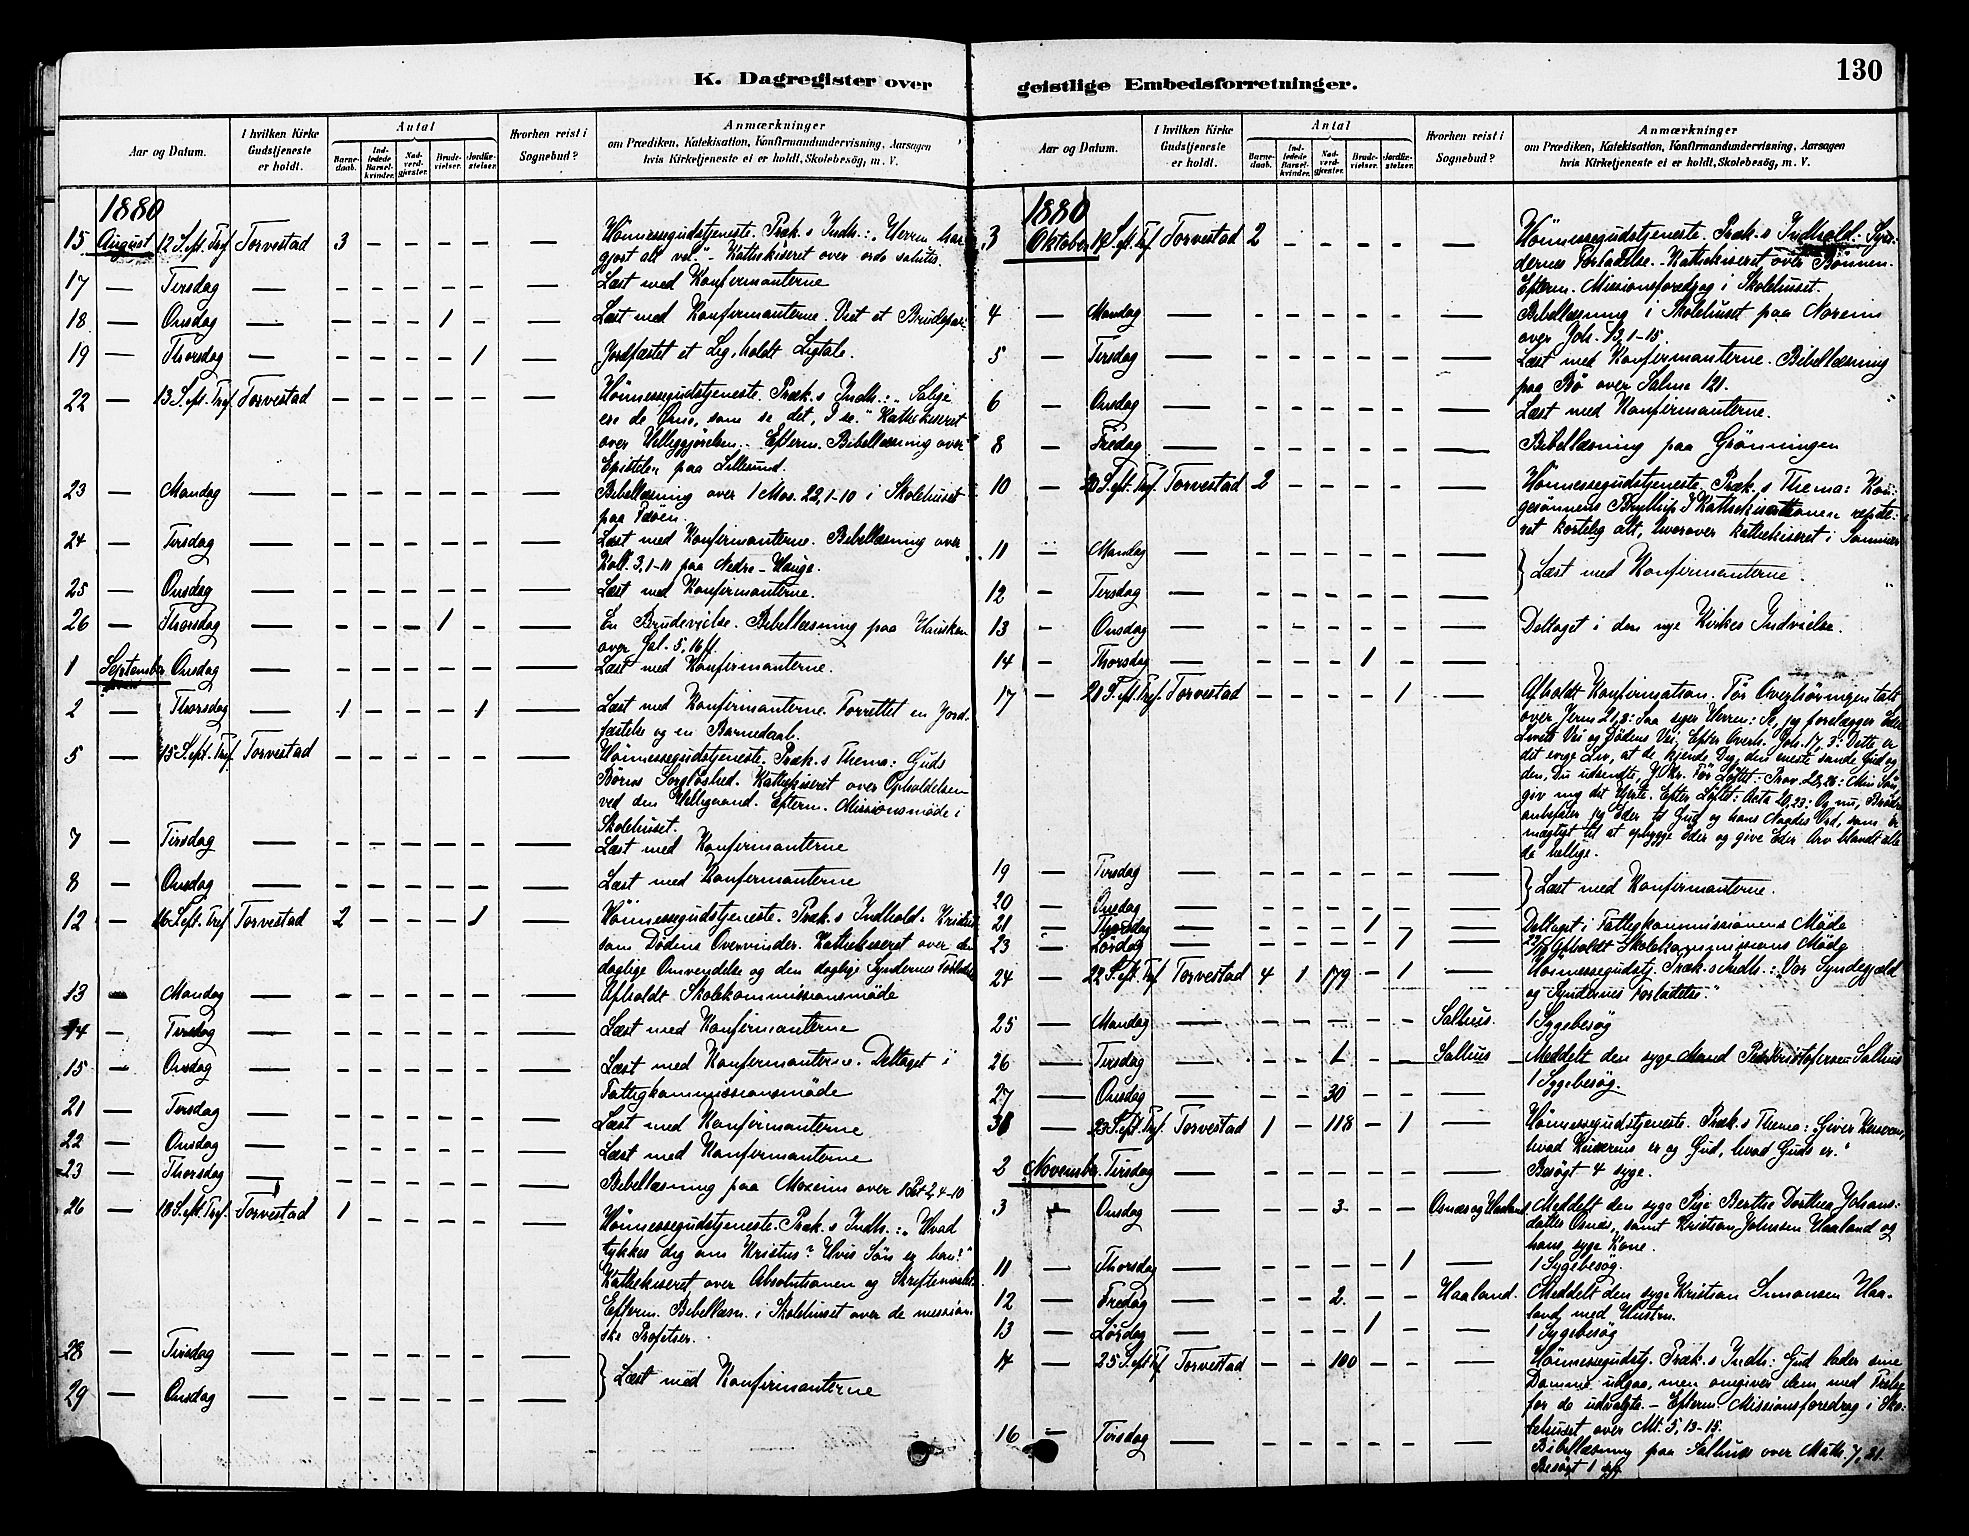 K. Dagregister over
Aar og Datum.
I hvilken Kirke Gudstjeneste er holdt.
Antal
Barnedaab.
Indledede Barselkvinder.
Nadverdgjester.
Brudevielser.
Jordfæstelser.
Hvorhen reist i Sognebud?
Anmærkninger
om Prædiken, Katekisation, Konfirmandundervisning, Aarsagen
hvis Kirketjeneste ei er holdt, Skolebesög, m. V.
1880
15 August 12 S. eft. Tref. Torvestad 3 – – – – — Hönnessegudstjeneste. Præk.s Indh.: „Herren har
gjort alt vel.” – Kathekiseret over ordo salutis.
17 — Tirsdag — – – – – – — Læst med Konfirmanterne
18 — Onsdag — – – – 1 – — Læst med Konfirmanterne. Viet et Brudepar
19 — Thorsdag — – – – – 1 — Jordfæstet et Lig, holdt Ligtale.
22 — 13 S. eft. Tref. Torvestad – – – – – — Hönnessegudstjeneste. Præk.s Indh.: „Salige
ere de Öine, som se det, I se.” Kathekiseret
over Helliggjörelsen. Efterm. Bibellæsning over
Epistelen paa Lillesund.
23 — Mandag — – – – – – — Bibellæsning over 1 Mos. 22,1-10 i Skolehuset
paa
24 — Tirsdag — – – – – – — Læst med Konfirmanterne. Bibellæsning over
Koll. 3,1-11 paa Nedre-Hauge.
25 — Onsdag — – – – – – — Læst med Konfirmanterne.
26 — Thorsdag — – – – 1 – — En Brudevielse. Bibellæsning paa Hausken
over Gal. 5, 16 ff.
1 September Onsdag — – – – – – — Læst med Konfirmanterne.
2 — Thorsdag — 1 – – – 1 — Læst med Konfirmanterne. Forrettet en Jord-
fæstelse og en Barnedaab.
5 — 15 S. eft. Tref. Torvestad – – – – – — Hönnessegudstjeneste. Præk.s Thema: Guds
Börns Sorglöshed. Kathekiseret over Opholdelsen
ved den Helligaand. Efterm. Missionsmöde i
Skolehuset.
7 — Tirsdag — – – – – – — Læst med Konfirmanterne
8 — Onsdag — – – – – – — Læst med Konfirmanterne
12 — 16 S. eft. Tref. Torvestad 2 – – – 1 — Hönnessegudstjeneste. Præk.s Indhold. Kristus
som Dödens Overvinder. Kathekiseret over den
daglige Omvendelse og den daglige Syndernes Forladelse
13 — Mandag — – – – – – — Afholdt Skolekommissionsmöde
14 — Tirsdag — – – – – – — Læst med Konfirmanterne
15 — Onsdag — – – – – – — Læst med Konfirmanterne. Deltaget i
Fattigkommissionsmöde
21 — Tirsdag — – – – – – — Læst med Konfirmanterne
22 — Onsdag — – – – – – — Læst med Konfirmanterne
23 — Thorsdag — – – – – – — Bibellæsning paa over 1 Pet 2,4-10
26 — 18 S. eft. Tref. Torvestad 1 – – – – — Hönnessegudstjeneste. Præk.s Indh.: „Hvad
tykkes dig om Kristus? Hvis Sön er han?”
Kathekiseret over Absolutionen og Skriftemaalet
Efterm. Bibellæsn. i Skolehuset over de messian-
ske Profetier.
28 — Tirsdag — – – – – – — } Læst med Konfirmanterne
29 — Onsdag — – – – – – —
geistlige Embedsforretninger.
130
Aar og Datum.
I hvilken Kirke Gudstjeneste er holdt.
Antal
Barnedaab.
Indledede Barselkvinder.
Nadverdgjester.
Brudevielser.
Jordfæstelser.
Hvorhen reist i Sognebud?
Anmærkninger
om Prædiken, Katekisation, Konfirmandundervisning, Aarsagen
hvis Kirketjeneste ei er holdt, Skolebesög, m. V.
1880
3 Oktober 19 S. eft. Tref. Torvestad 2 – – – – — Hönnessegudstjeneste. Præk.s Indhold: Syn-
dernes Forladelse. Kathekiseret over Bönnen.
Efterm. Missionsforedrag i Skolehuset.
4 — Mandag — – – – – – — Bibellæsning i Skolehuset paa Noreim
over Joh. 13,1-15.
5 — Tirsdag — – – – – – — Læst med Konfirmanterne. Bibellæsning
paa Bö over Salme 121.
6 — Onsdag — – – – – – — Læst med Konfirmanterne.
8 — Fredag — – – – – – — Bibellæsning paa Grönningen
10 — 20 S. eft. Tref. Torvestad 2 – – – – — Hönnessegudstjeneste. Præk.s Thema: Kon-
gesönnens Bryllup. I Kathekisationen repete-
ret kortelig alt, hvorover kathekiseret i Sommer
11 — Mandag — – – – – – — } Læst med Konfirmanterne.
12 — Tirsdag — – – – – – —
13 — Onsdag — – – – – – — Deltaget i den nye Kirkes Indvielse.
14 — Thorsdag — – – – 1 – —
17 — 21 S. eft. Tref. Torvestad – – – – 1 — Afholdt Konfirmation. För Overhöringen talt
over Jerm 21,8: Saa siger Herren: Se, jeg forelægger Eder
Livets Vei og Dödens Vei, Efter Overh. Joh. 17,3: Dette er
det evige Liv, at de kjende Dig, den eneste sande Gud og
den, Du udsendte, J. Kr. För Löftet: Prov. 23,26: Min Sön,
giv mig dit Hjerte. Efter Löftet: Acta 20,23: Og nu, Brödre
anbefaler jeg Eder til Gud og hans Naades Ord, som er
mægtigt til at opbygge Eder og give Eder Arv blandt alle
de hellige.
19 — Tirsdag — – – – – – — } Læst med Konfirmanterne.
20 — Onsdag — – – – – – —
21 — Thorsdag — – – – 1 – — Deltaget i Fattigkommissionens Möde
23 — Lördag — – – – – 1 — 22/10 Afholdt Skolekommissions Möde
24 — 22 S. eft. Tref. Torvestad 4 1 179 – 1 — Hönnessegudstj. Præk.s Indh.: „Vor Syndegjæld
og Syndernes Forladelse.”
25 — Mandag — – – – – – Salhus. 1 Sygebesög
26 — Tirsdag — – – 1 – – Salhus Meddelt den syge Mand Peder Kristofersen Salhus
1 Sygebesög.
27 — Onsdag — – – 30 – – —
31 — 23 S. eft. Tref. Torvestad 1 – 118 – 1 — Hönnessegudstjeneste. Præk.s Thema: „Giver Keiseren,
hvad Keiserens er og Gud, hvad Guds er.”
2 November Tirsdag — – – – – – — Besögt 4 syge.
3 — Onsdag — – – 3 – – Osnæs og Haaland, Meddelt den syge Pige Berthe Dorthea Johans-
datter Osnæs, samt Kristian Johnsen Haaland og
hans syge Kone.
11 — Thorsdag — – – – – 1 — 1 Sygebesög.
12 — Fredag — – – 2 – – Haaland. Meddelt den syge Kristian Simonsen Haa-
land med Hustru.
13 — Lördag — – – – 1 – — 1 Sygebesög
14 — 25 S. eft. Tref. Torvestad – – 100 – – — Hönnessegudstj. Præk.s Indh.: Gud lader sine
Domme udgaa, men omgiver dem med Frelse
for de udvalgte. – Efterm. Missionsforedrag i Sko-
lehuset over Mt. 5,13-15.
16 — Tirsdag — – – – – – — Bibellæsning paa Salhus over Math. 7, 21.
Besögt 1 syg.